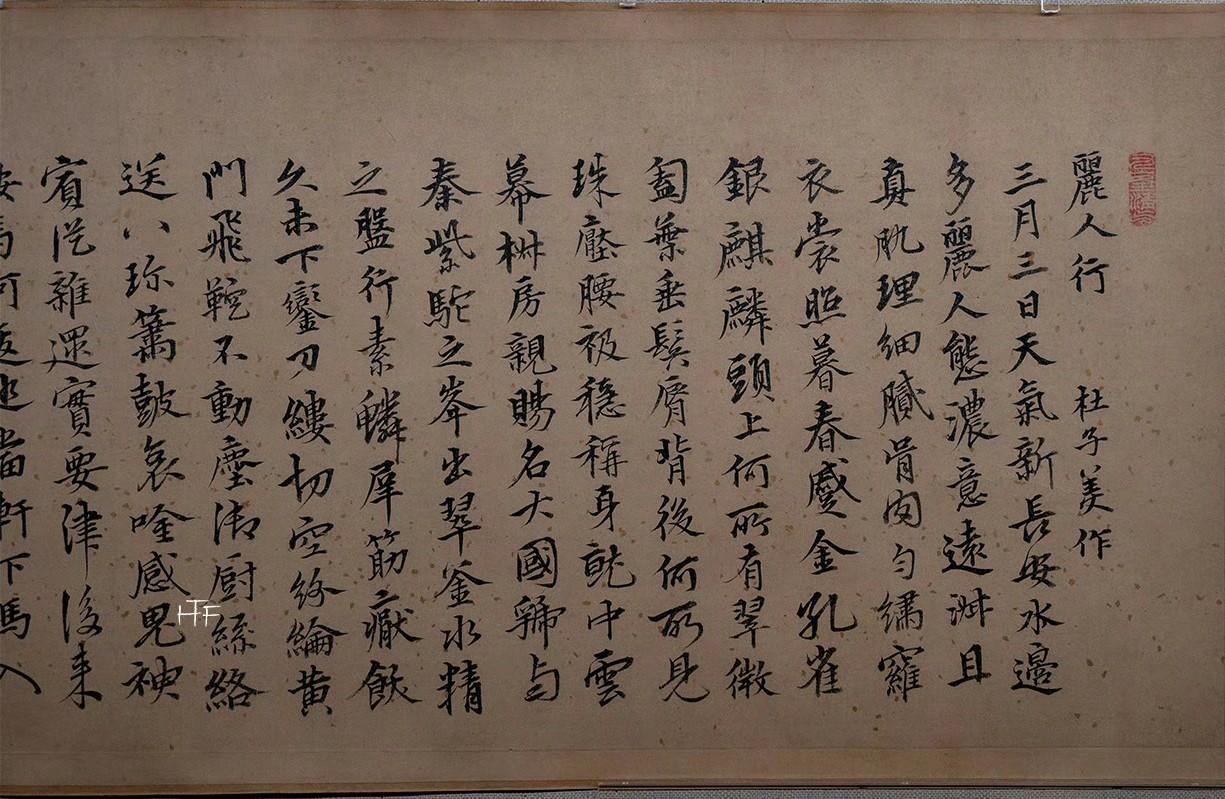 麗人行 杜子美作
三月三日天氣新長安水邊
多麗人態濃意遠淑且
真肌理細膩骨肉勻繡羅
衣裳照暮春蹙金孔雀
銀麒麟頭上何所有翠微
㔩葉垂鬢脣背後何所見
珠壓腰衱穩稱身就中雲
幕椒房親賜名大國虢与
秦紫駝之峯出翠釜水精
之盤行素鱗犀筯厭飫
久未下鑾刀縷切空紛綸黄
門飛鞚不動塵御厨絲絡
送八珍簫鼓哀吟感鬼神
賓從雜遝實要津後来
馬何逡巡當軒下馬入
HTF